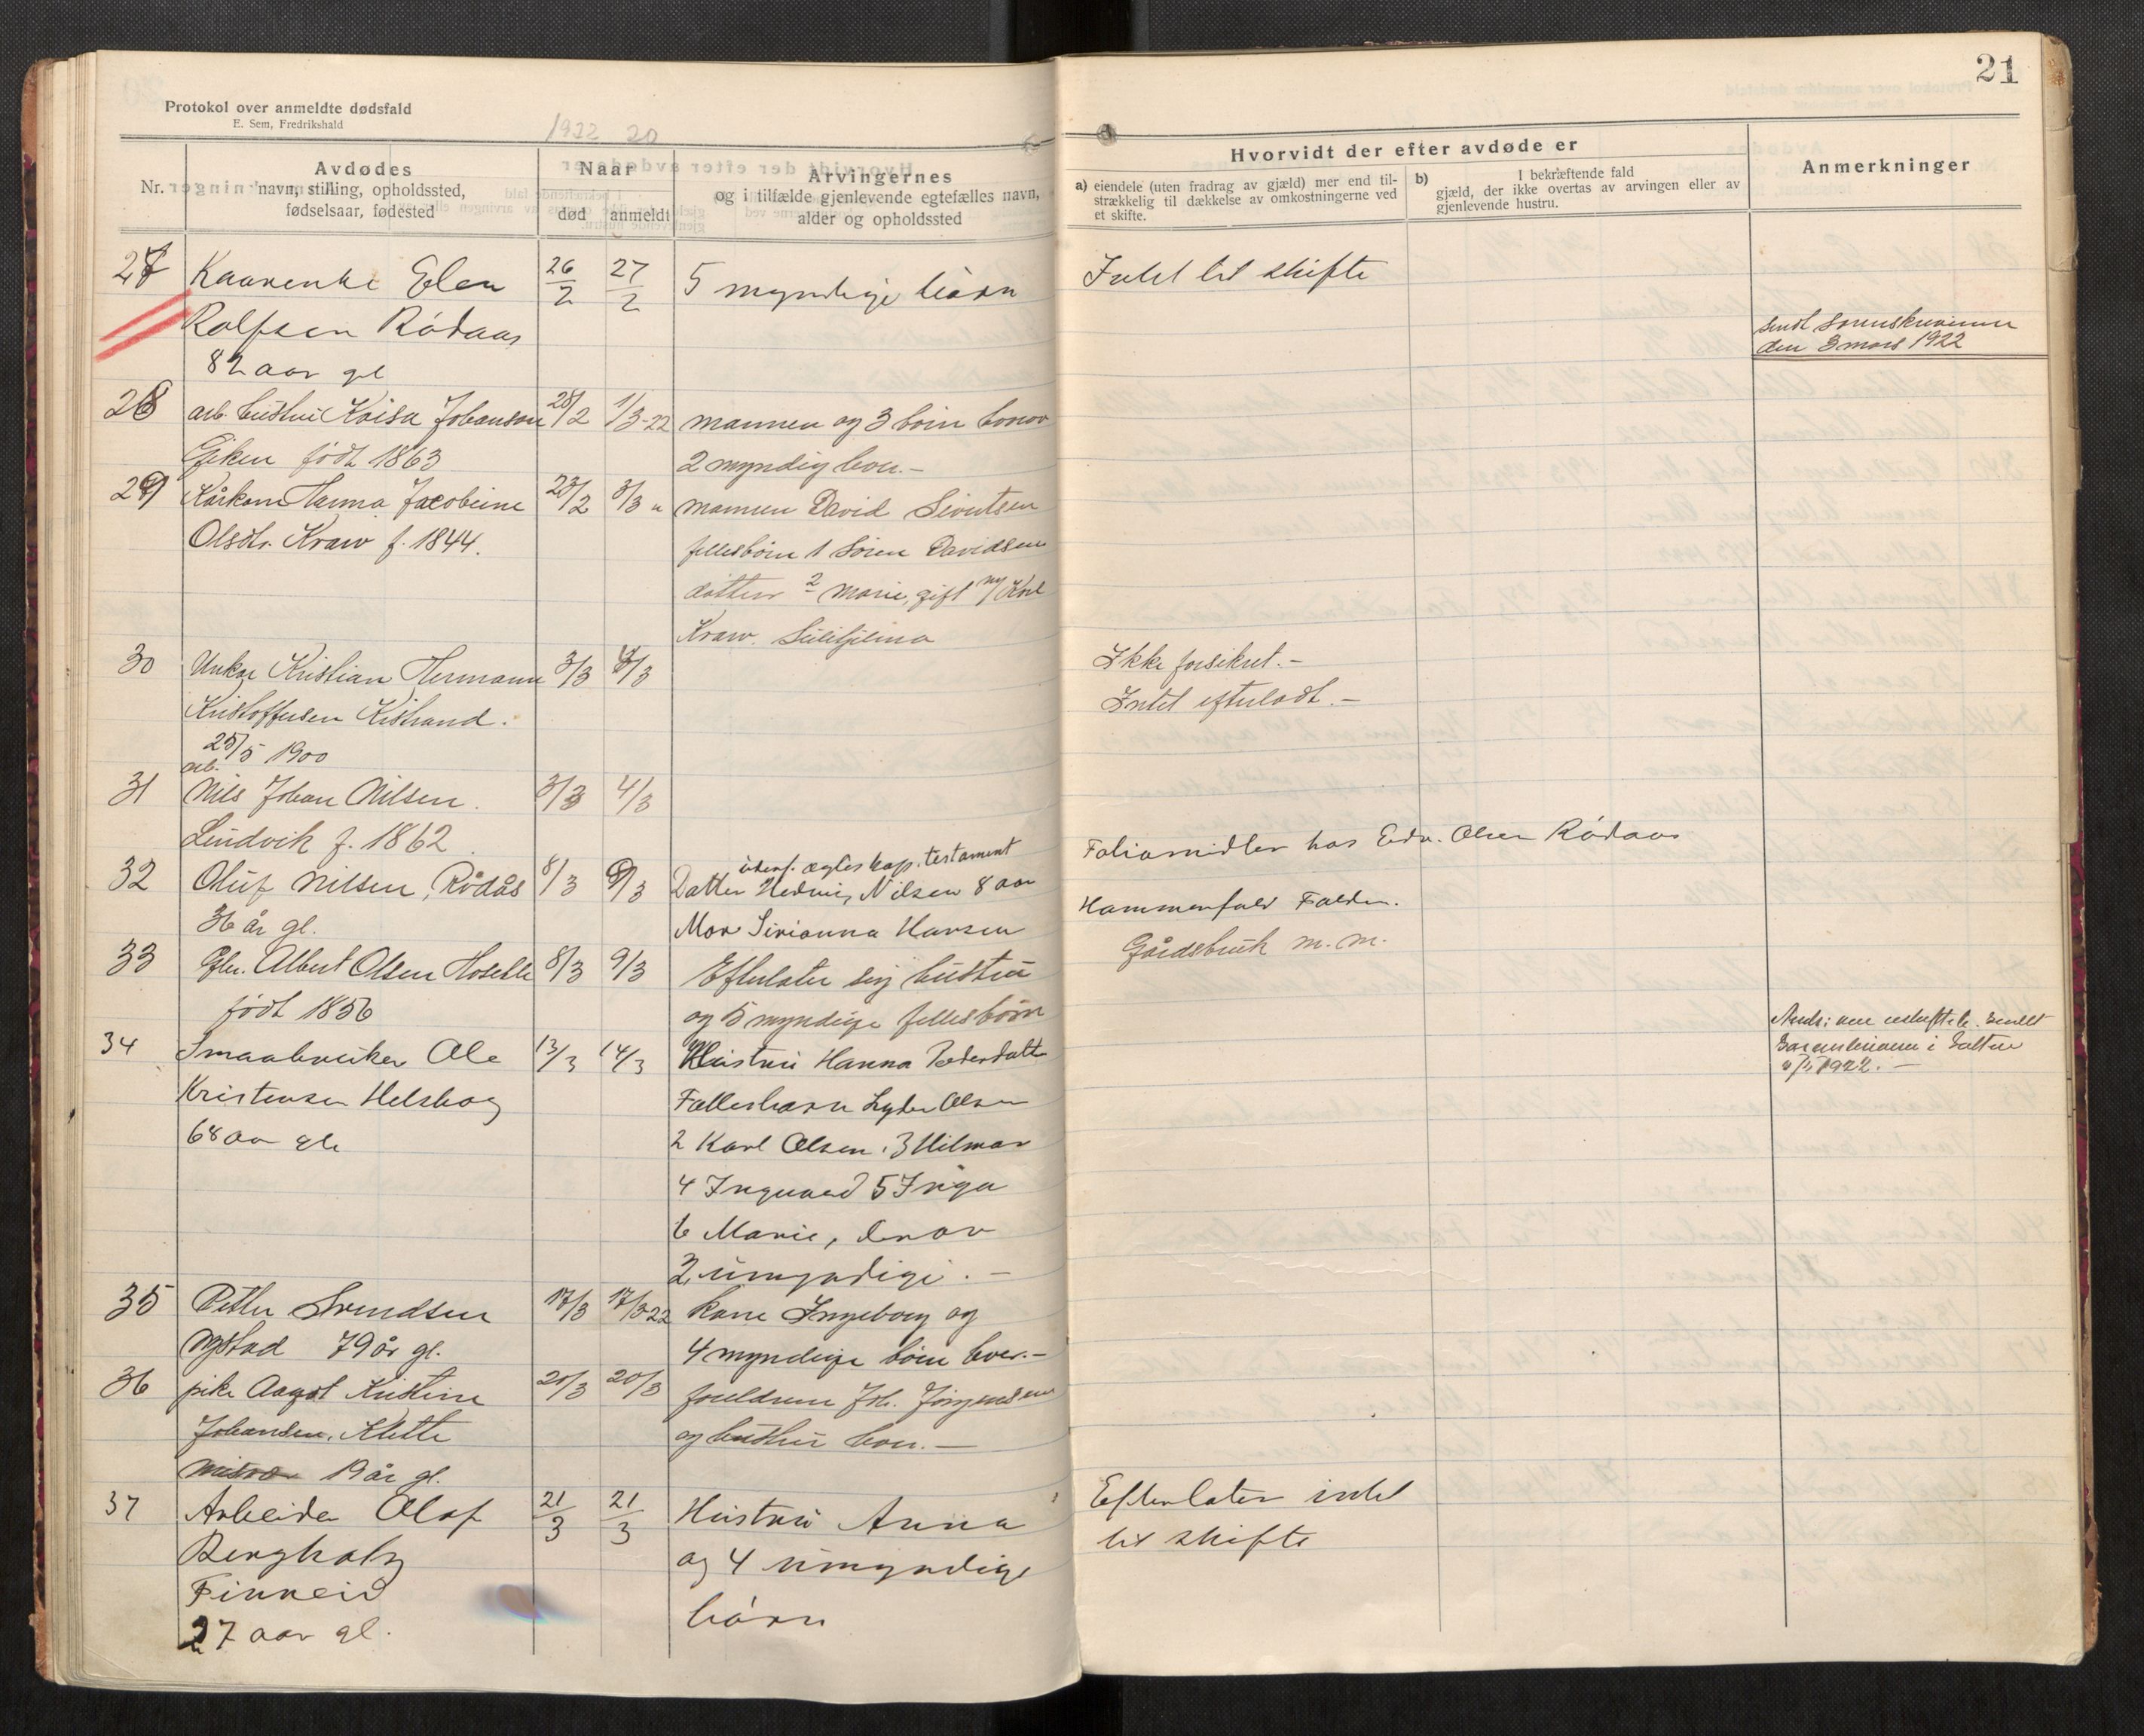 Protokol over anmeldte dødsfald
E. Sem, Fredrikshald
1922 20
21
Nr.
Avdødes
navn, stilling, opholdssted,
fødselsaar, fødested
Naar
død
anmeldt
Arvingernes
og i tilfælde gjenlevende egtefælles navn,
alder og opholdssted
Hvorvidt der efter avdøde er
a) eiendele (uten fradrag av gjæld) mer end til-
strækkelig til dækkelse av omkostningerne ved
et skifte.
b) I bekræftende fald
gjæld, der ikke overtas av arvingen eller av
gjenlevende hustru.
Anmerkninger
27 Elen 26/2 27/2 5 myndige børn Intet til skifte
Rolfsen Rødaas
82 aar gl
sendt sorenskriveren
den 3 mars 1922
28 arb. hustru Kaisa Johanson 28/2 1/3-22 mannen og 3 børn hvorav
født 1863 2 myndig
29 Kårkone Hanna Jacobine 23/2 3/3 " mannen David Sivertsen
Olsdtr. f. 1844. fellesbörn 1 Sören Davidsen
datter 2 Marie, gift m/ Karl
Sulitjelma
30 Kristian Hermann 3/3 Ikke forsikret.-
Kristoffersen Kistrand. Intet efterladt.-
25/5 1900
31 arb. Nils Johan Nilsen. 3/3 4/3
f. 1862
32 Oluf Nilsen, Rødås 8/3 9/3 Datter Hedvig Nilsen 8 aar
utenf. ægteskap. testament
Foliomidler hos Edv. Olsen Rödaas
36 år gl. Mor Sirianna Hansen
33 Albert Olsen 8/3 9/3 Efterlater sig hustru
Gårdsbruk m.m.
født 1856 og 5 myndige fellesbörn
34 Smaabruker Ole 13/3 14/3 Hustru Hanna Pedersdatter
Kristensen Helskog Fællesbarn Lyder Olsen
68 aar gl 2 Karl Olsen. 3 Hilmar
4 Ingvard 5 Inga
6 Marie, derav
2 umyndige. -
35 Petter Svendsen 17/3 17/3-22 kone Ingeborg og
79 år gl. 4 myndige börn
36 pike Aagot Kristine 20/3 20/3 foreldrene Joh. Jörgensen
Johansen, Klette og hustru
19 år gl.
37 Arbeider Olaf 21/3 21/3 Hustru Anna Efterlater intet
og 4 umyndige til skifte
Finneid børn
27 aar gl.